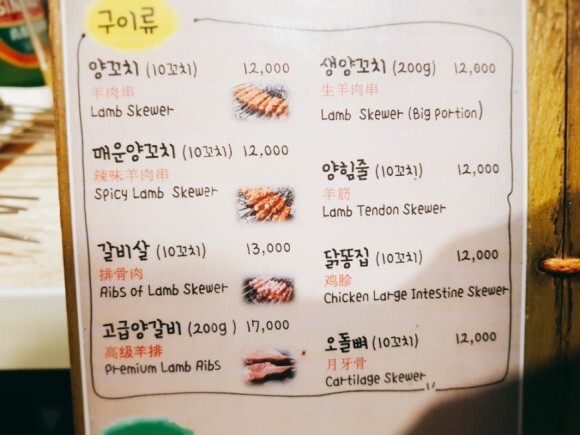 구이류
양꼬치 (10꼬치) 12,000
羊肉串
Lamb Skewer
매운양꼬치 (10꼬치) 12,000
辣味羊肉串
Spicy Lamb Skewer
갈비살 (10꼬치) 13,000
排骨肉
Ribs of Lamb Skewer
고급양갈비 (200g) 17,000
高级羊排
Premium Lamb Ribs
생양꼬치 (200g) 12,000
生羊肉串
Lamb Skewer (Big portion)
양힘줄 (10꼬치) 12,000
羊筋
Lamb Tendon Skewer
닭똥집 (10꼬치) 12,000
鸡胗
Chicken Large Intestine Skewer
오돌뼈 (10꼬치) 12,000
月牙骨
Cartilage Skewer